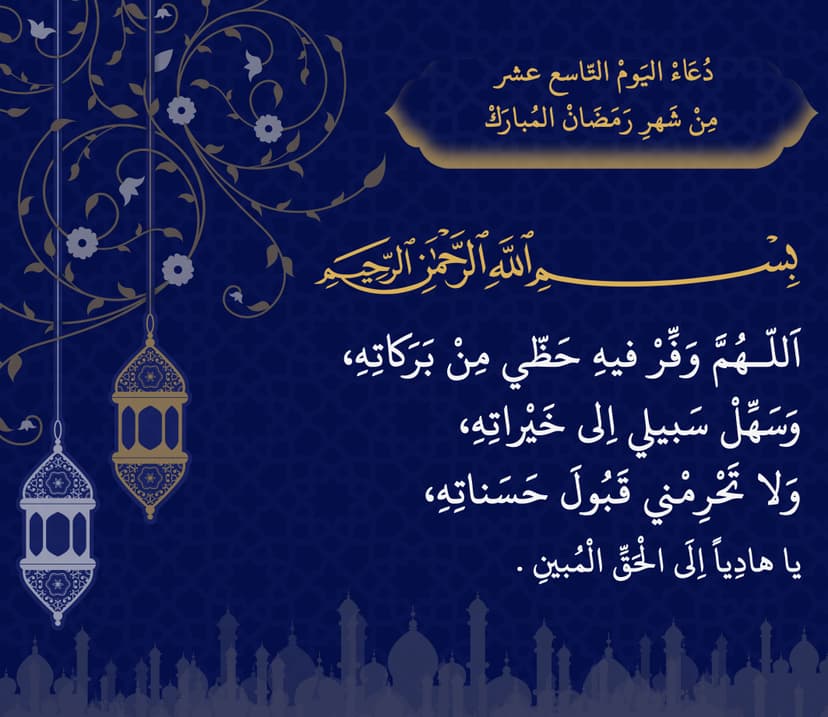 دُعَاءْ اليَومْ التّاسع عشر
مِنْ شَهرِ رَمَضَانْ المُبارَكْ
بِسْــــمِ ٱللَّهِ ٱلرَّحْمَٰنِ ٱلرَّحِيمِ
اَللّـهُمَّ وَفِّرْ فيهِ حَظّي مِنْ بَرَكاتِهِ،
وَسَهِّلْ سَبيلي اِلى خَيْراتِهِ،
وَلا تَحْرِمْني قَبُولَ حَسَناتِهِ،
يا هادِياً اِلَى الْحَقِّ الْمُبينِ .